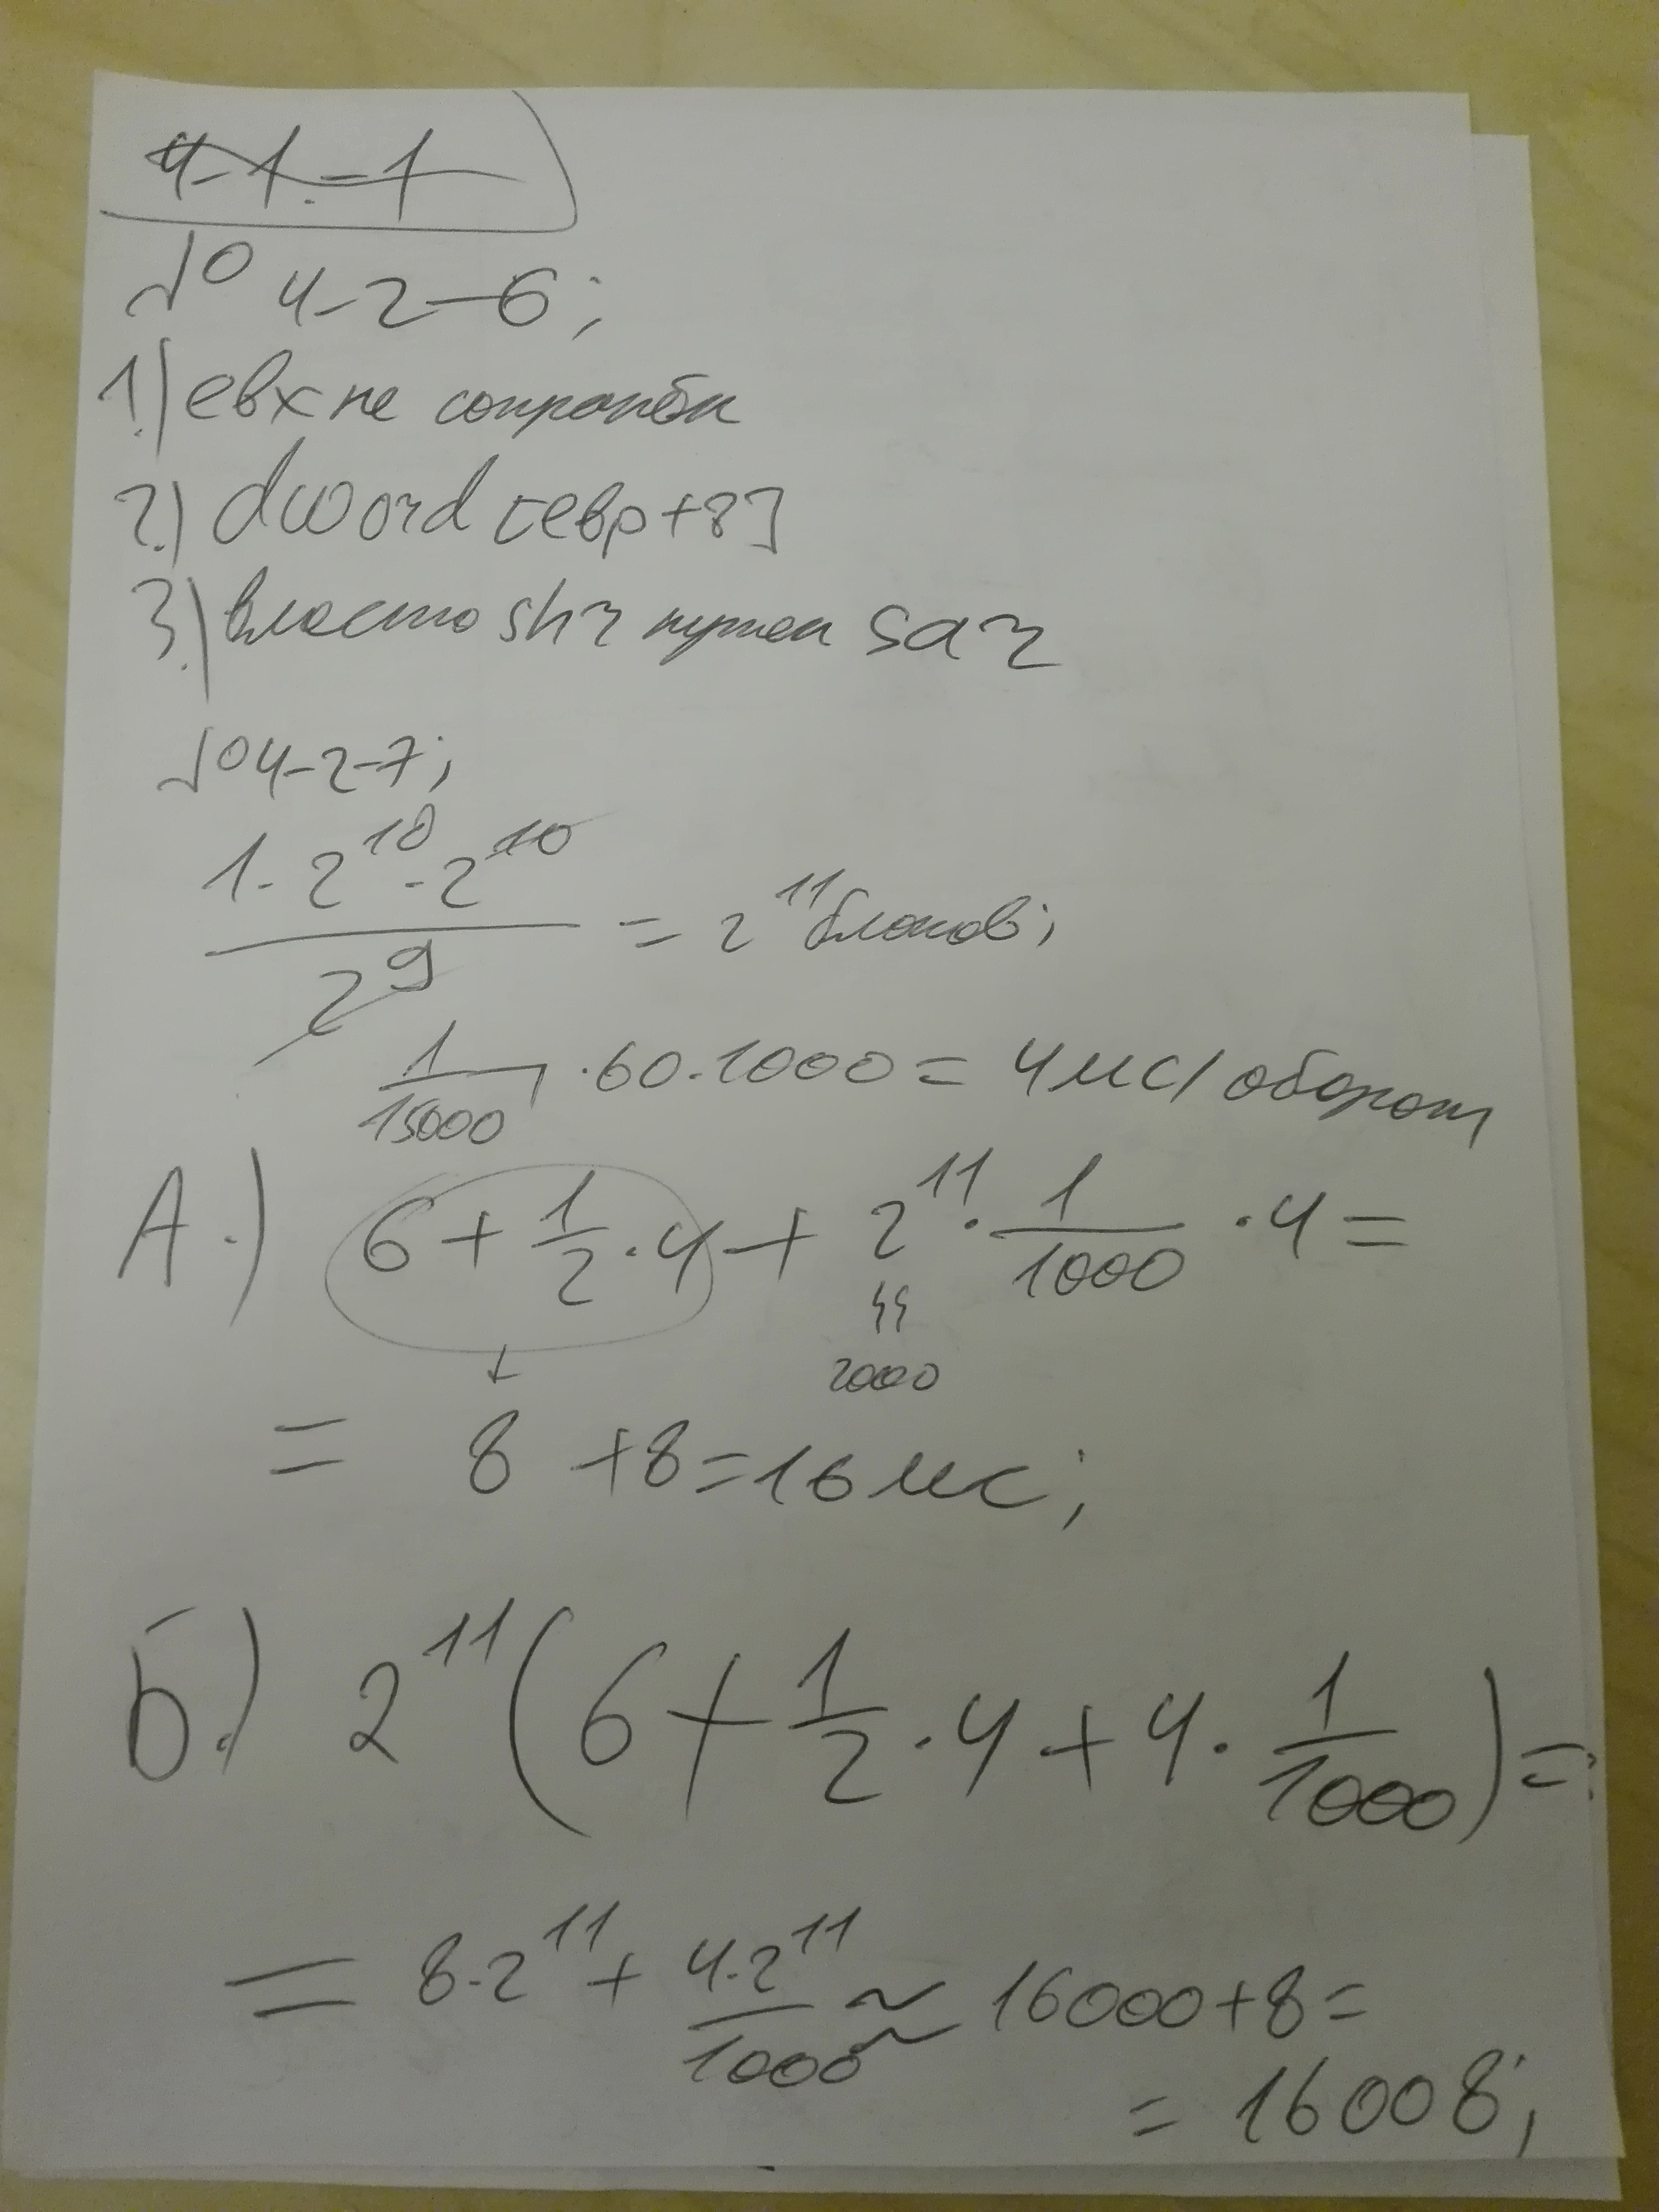 4-1-1
№ 4-2-6;
1.) ebx не
2.) dword [ebp+8]
3.) вместо shr нужен sar
№ 4-2-7;
1·2^10·2^10 / 2^9 = 2^11 блоков;
1/15000 · 60·1000 = 4 мс/оборот
А.) 6 + 1/2 · 4 + 2^11 · 1/1000 · 4 =
2000
= 8 + 8 = 16 мс;
Б.) 2^11 (6 + 1/2 · 4 + 4 · 1/1000) =
= 8·2^11 + 4·2^11/1000 ≈ 16000 + 8 =
= 16008;